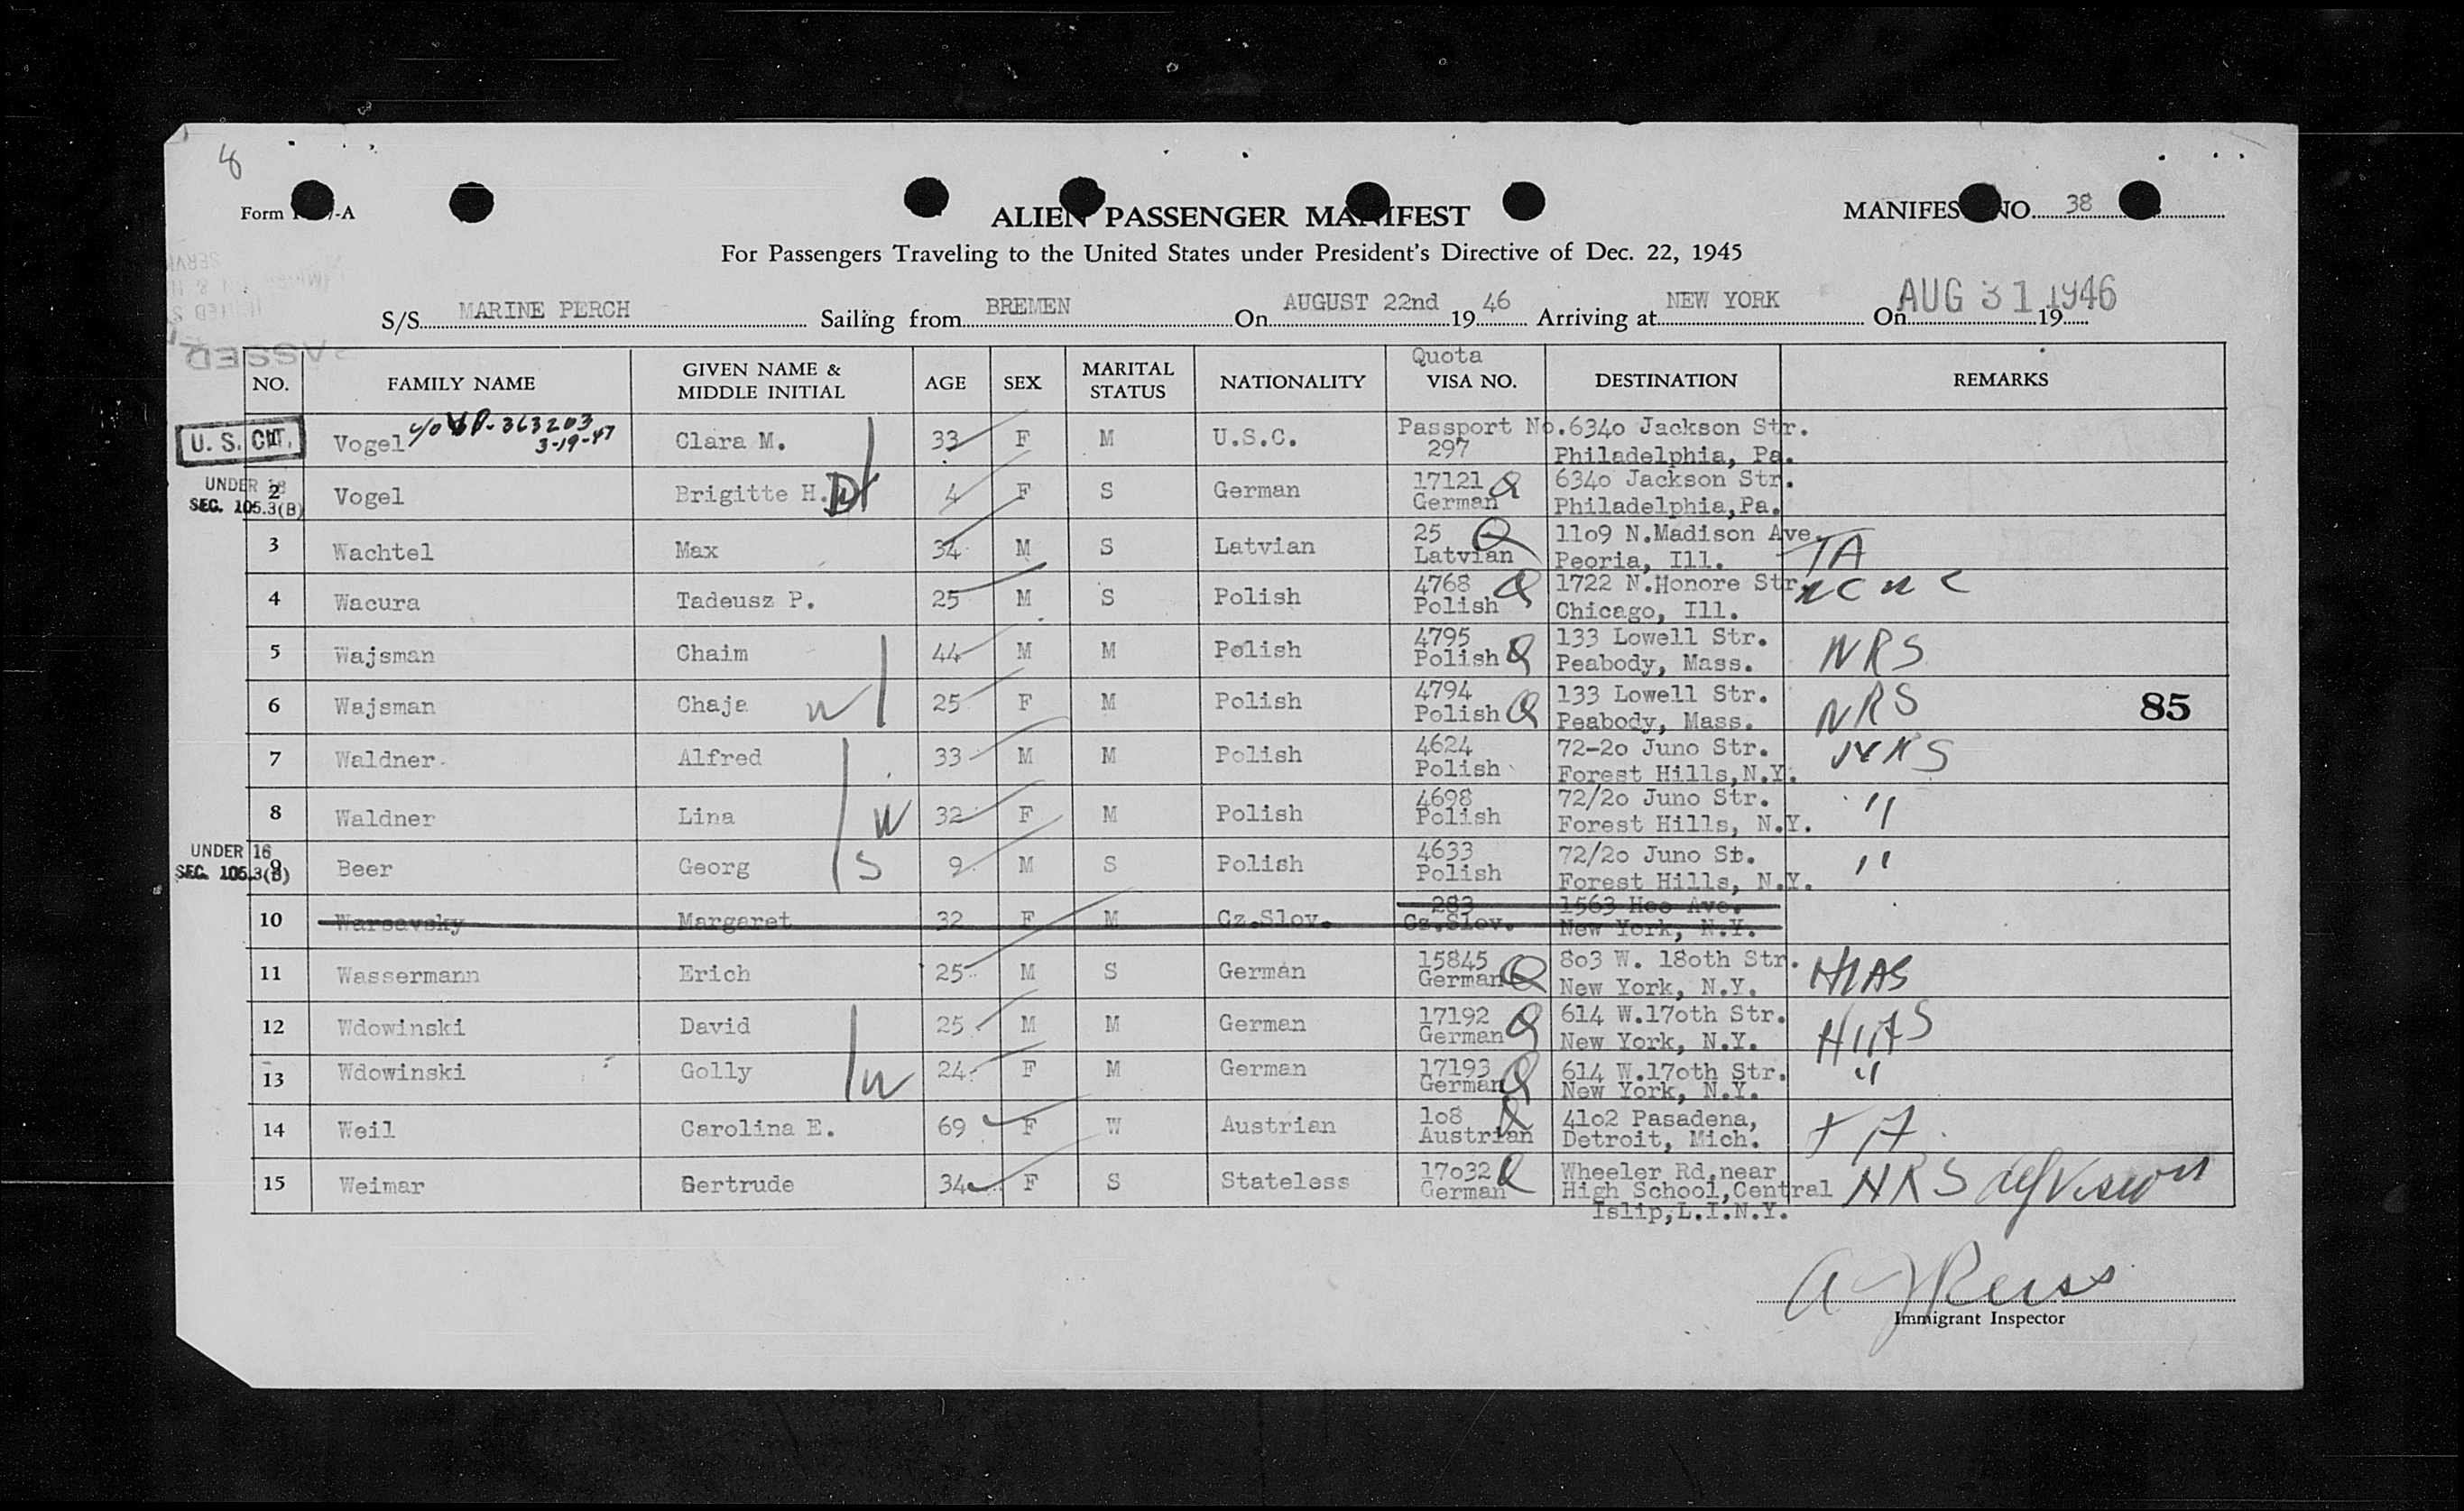 8
Form I -A
ALIEN PASSENGER MANIFEST
MANIFEST NO. 38
For Passengers Traveling to the United States under President's Directive of Dec. 22, 1945
S/S MARINE PERCH Sailing from BREMEN On AUGUST 22nd 19 46 Arriving at NEW YORK On AUG 31 1946 19
PASSED
NO. FAMILY NAME GIVEN NAME & MIDDLE INITIAL AGE SEX MARITAL STATUS NATIONALITY Quota VISA NO. DESTINATION REMARKS
3-19-47
U. S. CIT. Vogel Clara M. 33 F M U.S.C. Passport No. 6340 Jackson Str.
297 Philadelphia, Pa.
UNDER 16
SEC. 105.3(B)
2 Vogel Brigitte H. D 4 F S German 17121 Q 6340 Jackson Str.
German Philadelphia,Pa.
3 Wachtel Max 34 M S Latvian 25 Q 1109 N.Madison Ave.
Latvian Peoria, Ill. TA
4 Wacura Tadeusz P. 25 M S Polish 4768 Q 1722 N.Honore Str. NCWC
Polish Chicago, Ill.
5 Wajsman Chaim 44 M M Polish 4795 133 Lowell Str. NRS
Polish Q Peabody, Mass.
6 Wajsman Chaja W 25 F M Polish 4794 133 Lowell Str. NRS 85
Polish Q Peabody, Mass.
7 Waldner Alfred 33 M M Polish 4624 72-20 Juno Str. NRS
Polish Forest Hills,N.Y.
8 Waldner Lina W 32 F M Polish 4698 72/20 Juno Str. "
Polish Forest Hills, N.Y.
UNDER 16
SEC. 105.3(B)
9 Beer Georg S 9 M S Polish 4633 72/20 Juno St. "
Polish Forest Hills, N.Y.
10 Warsavsky Margaret 32 F M Cz.Slov. 283 1563 Hoe Ave.
Cz.Slov. New York, N.Y.
11 Wassermann Erich 25 M S German 15845 803 W. 180th Str. HIAS
German Q New York, N.Y.
12 Wdowinski David 25 M M German 17192 Q 614 W.170th Str. HIAS
German New York, N.Y.
13 Wdowinski Golly W 24 F M German 17193 Q 614 W.170th Str. "
German New York, N.Y.
14 Weil Carolina E. 69 F W Austrian 108 Q 4102 Pasadena, TA
Austrian Detroit, Mich.
15 Weimar Gertrude 34 F S Stateless 17032 Q Wheeler Rd,near NRS
German High School,Central
Islip,L.I.N.Y.
A J Reiss
Immigrant Inspector